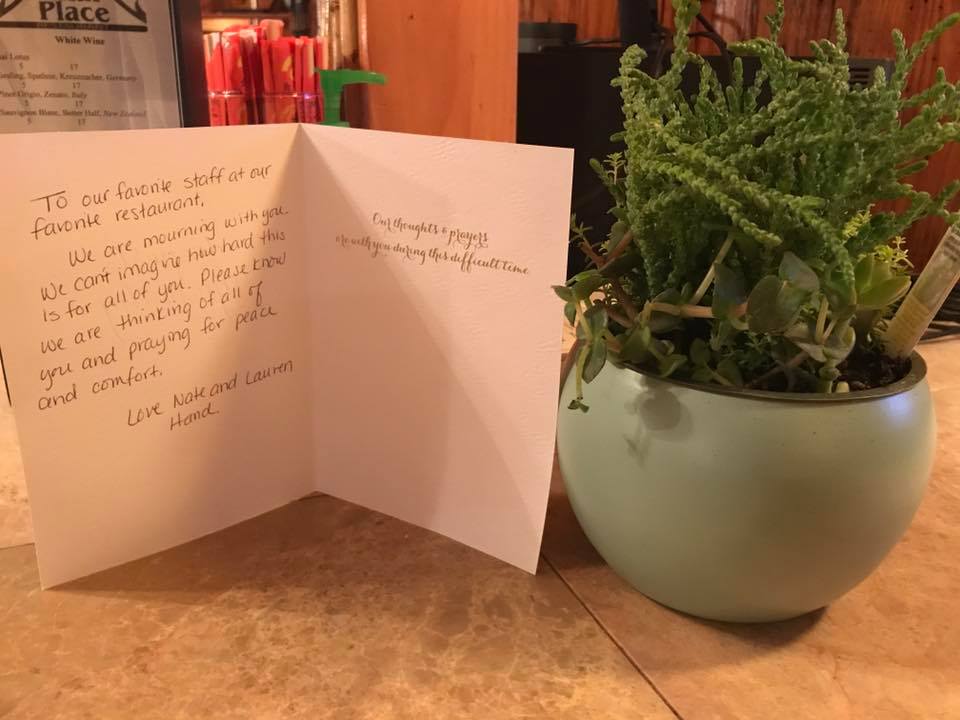 Place
White Wine
5 17
Riesling, Spatlese, Kreuznacher, Germany
5 17
Pinot Grigio, Zenato, Italy
5 17
Sauvignon Blanc, Sutter Half, New Zealand
5 17
To our favorite staff at our
favorite restaurant,
We are mourning with you.
We can't imagine how hard this
is for all of you. Please know
we are thinking of all of
you and praying for peace
and comfort.
Love Nate and Lauren
Hand.
Our thoughts & prayers
are with you during this difficult time